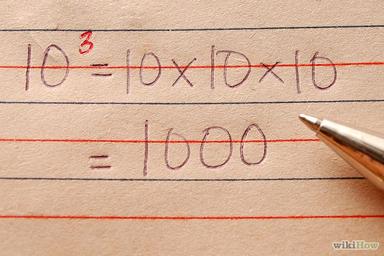 10³ = 10×10×10
= 1000
wikiHow